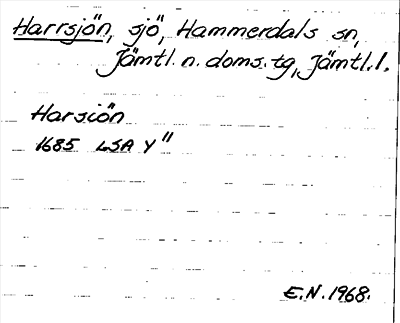 Harrsjön, sjö, Hammerdals sn,
Jämtl. n. doms. tg, Jämtl. l.
Harsiön
1685 LSA Y"
E.N. 1968.